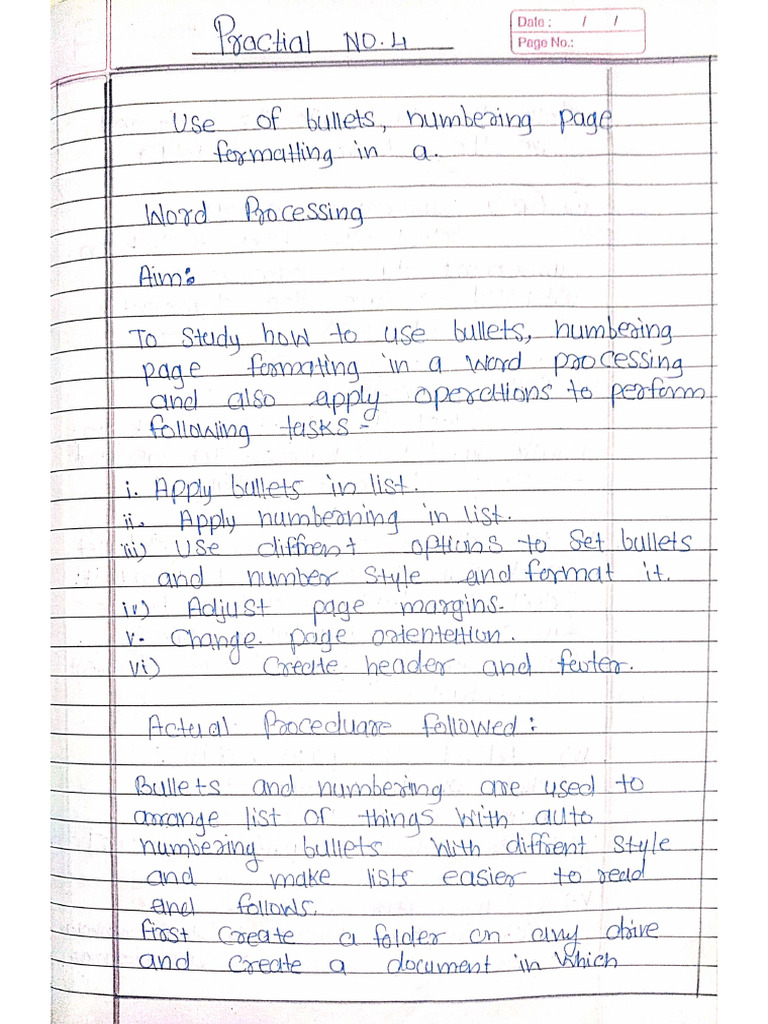 Practial NO. 4
Date : / /
Page No.:
Use of bullets, numbering page
formatting in a.
Word Processing
Aim:
To study how to use bullets, numbering
page formating in a word processing
and also apply operations to perform
following tasks -
i. Apply bullets in list.
ii. Apply numberning in list.
iii) Use diffrent options to set bullets
and number style and format it.
iv) Adjust page margins.
v. Change page orientetion.
vi) Create header and footer.
Actual Proceduare followed :
Bullets and numbering are used to
arrange list of things with auto
numbering bullets with diffrent style
and make lists easier to read
and follows.
first create a folder on any drive
and create a document in which